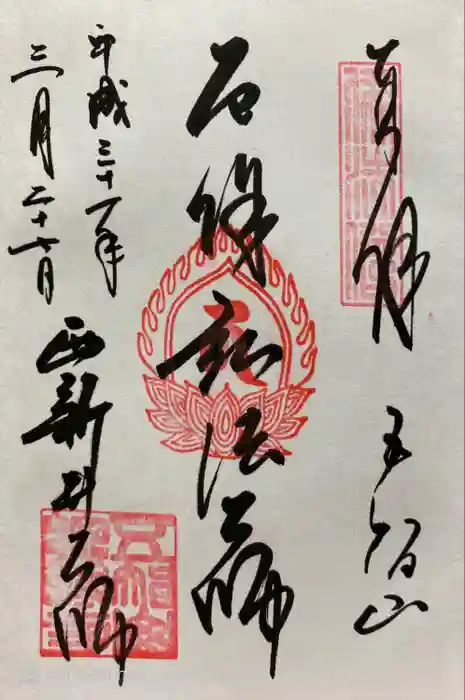 奉拝 五智山
厄除弘法大師
平成三十一年
三月二十七日
西新井大師